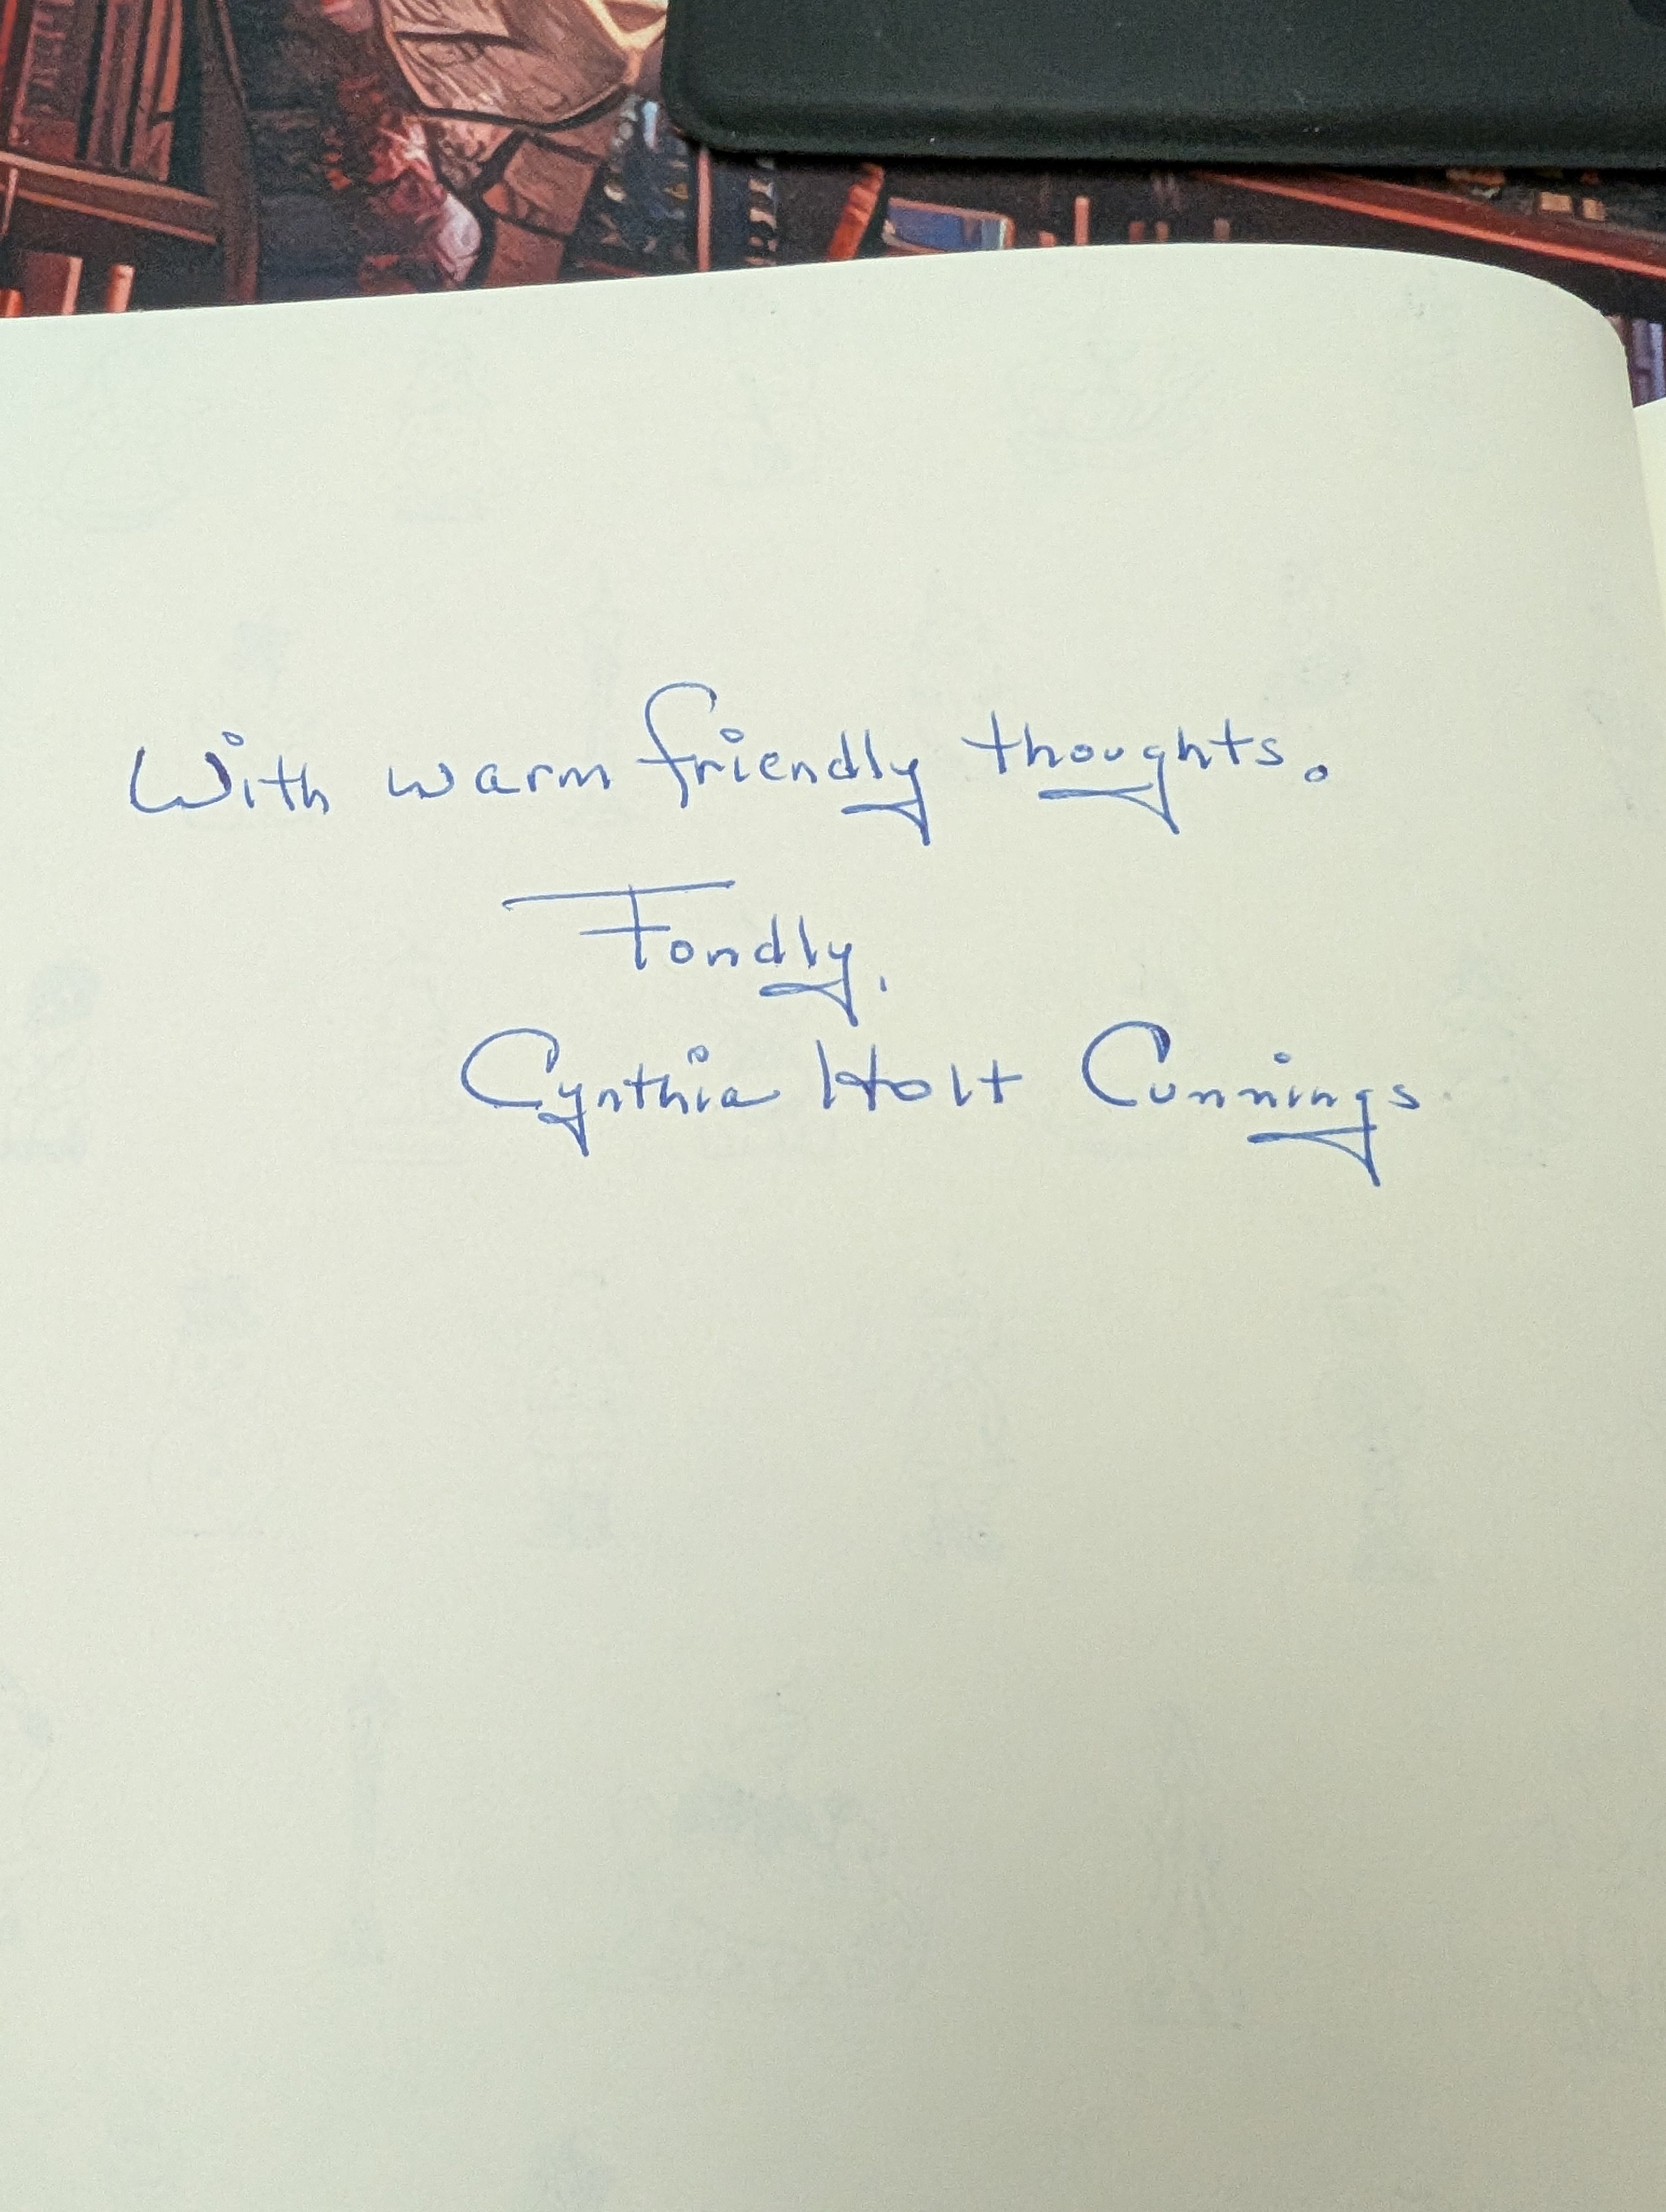 With warm friendly thoughts.
Fondly,
Cynthia Holt Cunnings